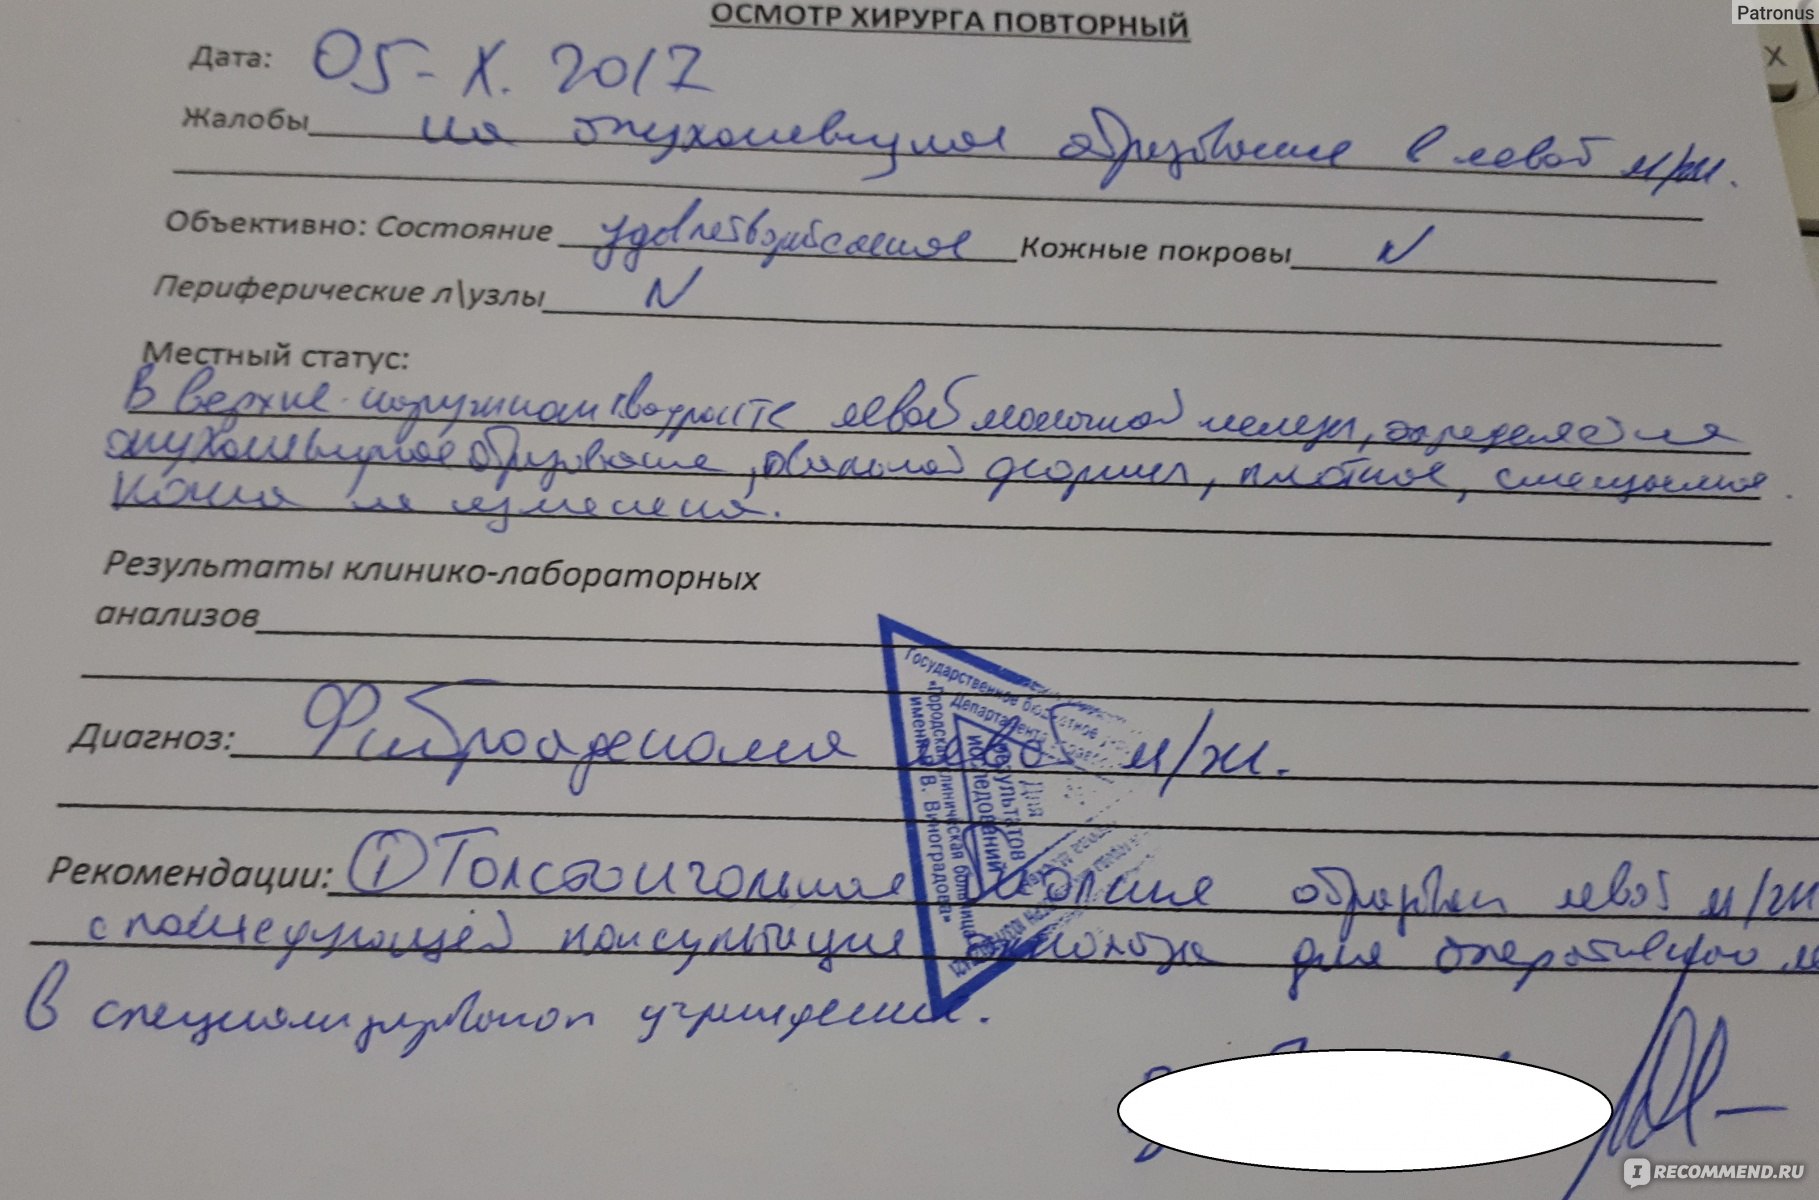 Patronus
ОСМОТР ХИРУРГА ПОВТОРНЫЙ
Дата: 05-X. 2017
Жалобы на опухолевидное образование в левой м/ж.
Объективно: Состояние удовлетворительное Кожные покровы N
Периферические л\узлы N
Местный статус:
В верхне-наружном квадранте левой молочной железы, определяется
опухолевидное образование, овальной формы, плотное, смещаемое.
Кожа не изменена.
Результаты клинико-лабораторных
анализов
Диагноз: Фиброаденома левой м/ж.
Рекомендации: ① Толстоигольная биопсия образован левой м/ж
с последующей консультация онколога для оперативного л
в специализированом учреждении.
Государственное бюджетное
Департамента
«Городская клиническая больница
имени В. В. Виноградова»
Для
результатов
исследований
IRECOMMEND.RU